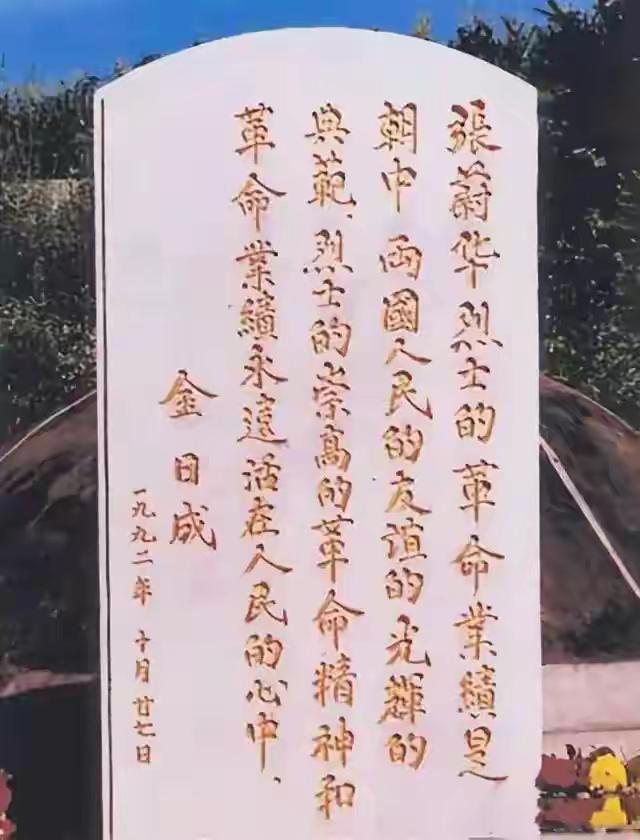 張蔚华烈士的革命業績是
朝中两國人民的友誼的光輝的
典範、烈士的崇高的革命精神和
革命業績永遠活在人民的心中、
金日成
一九九二年 十月廿七日